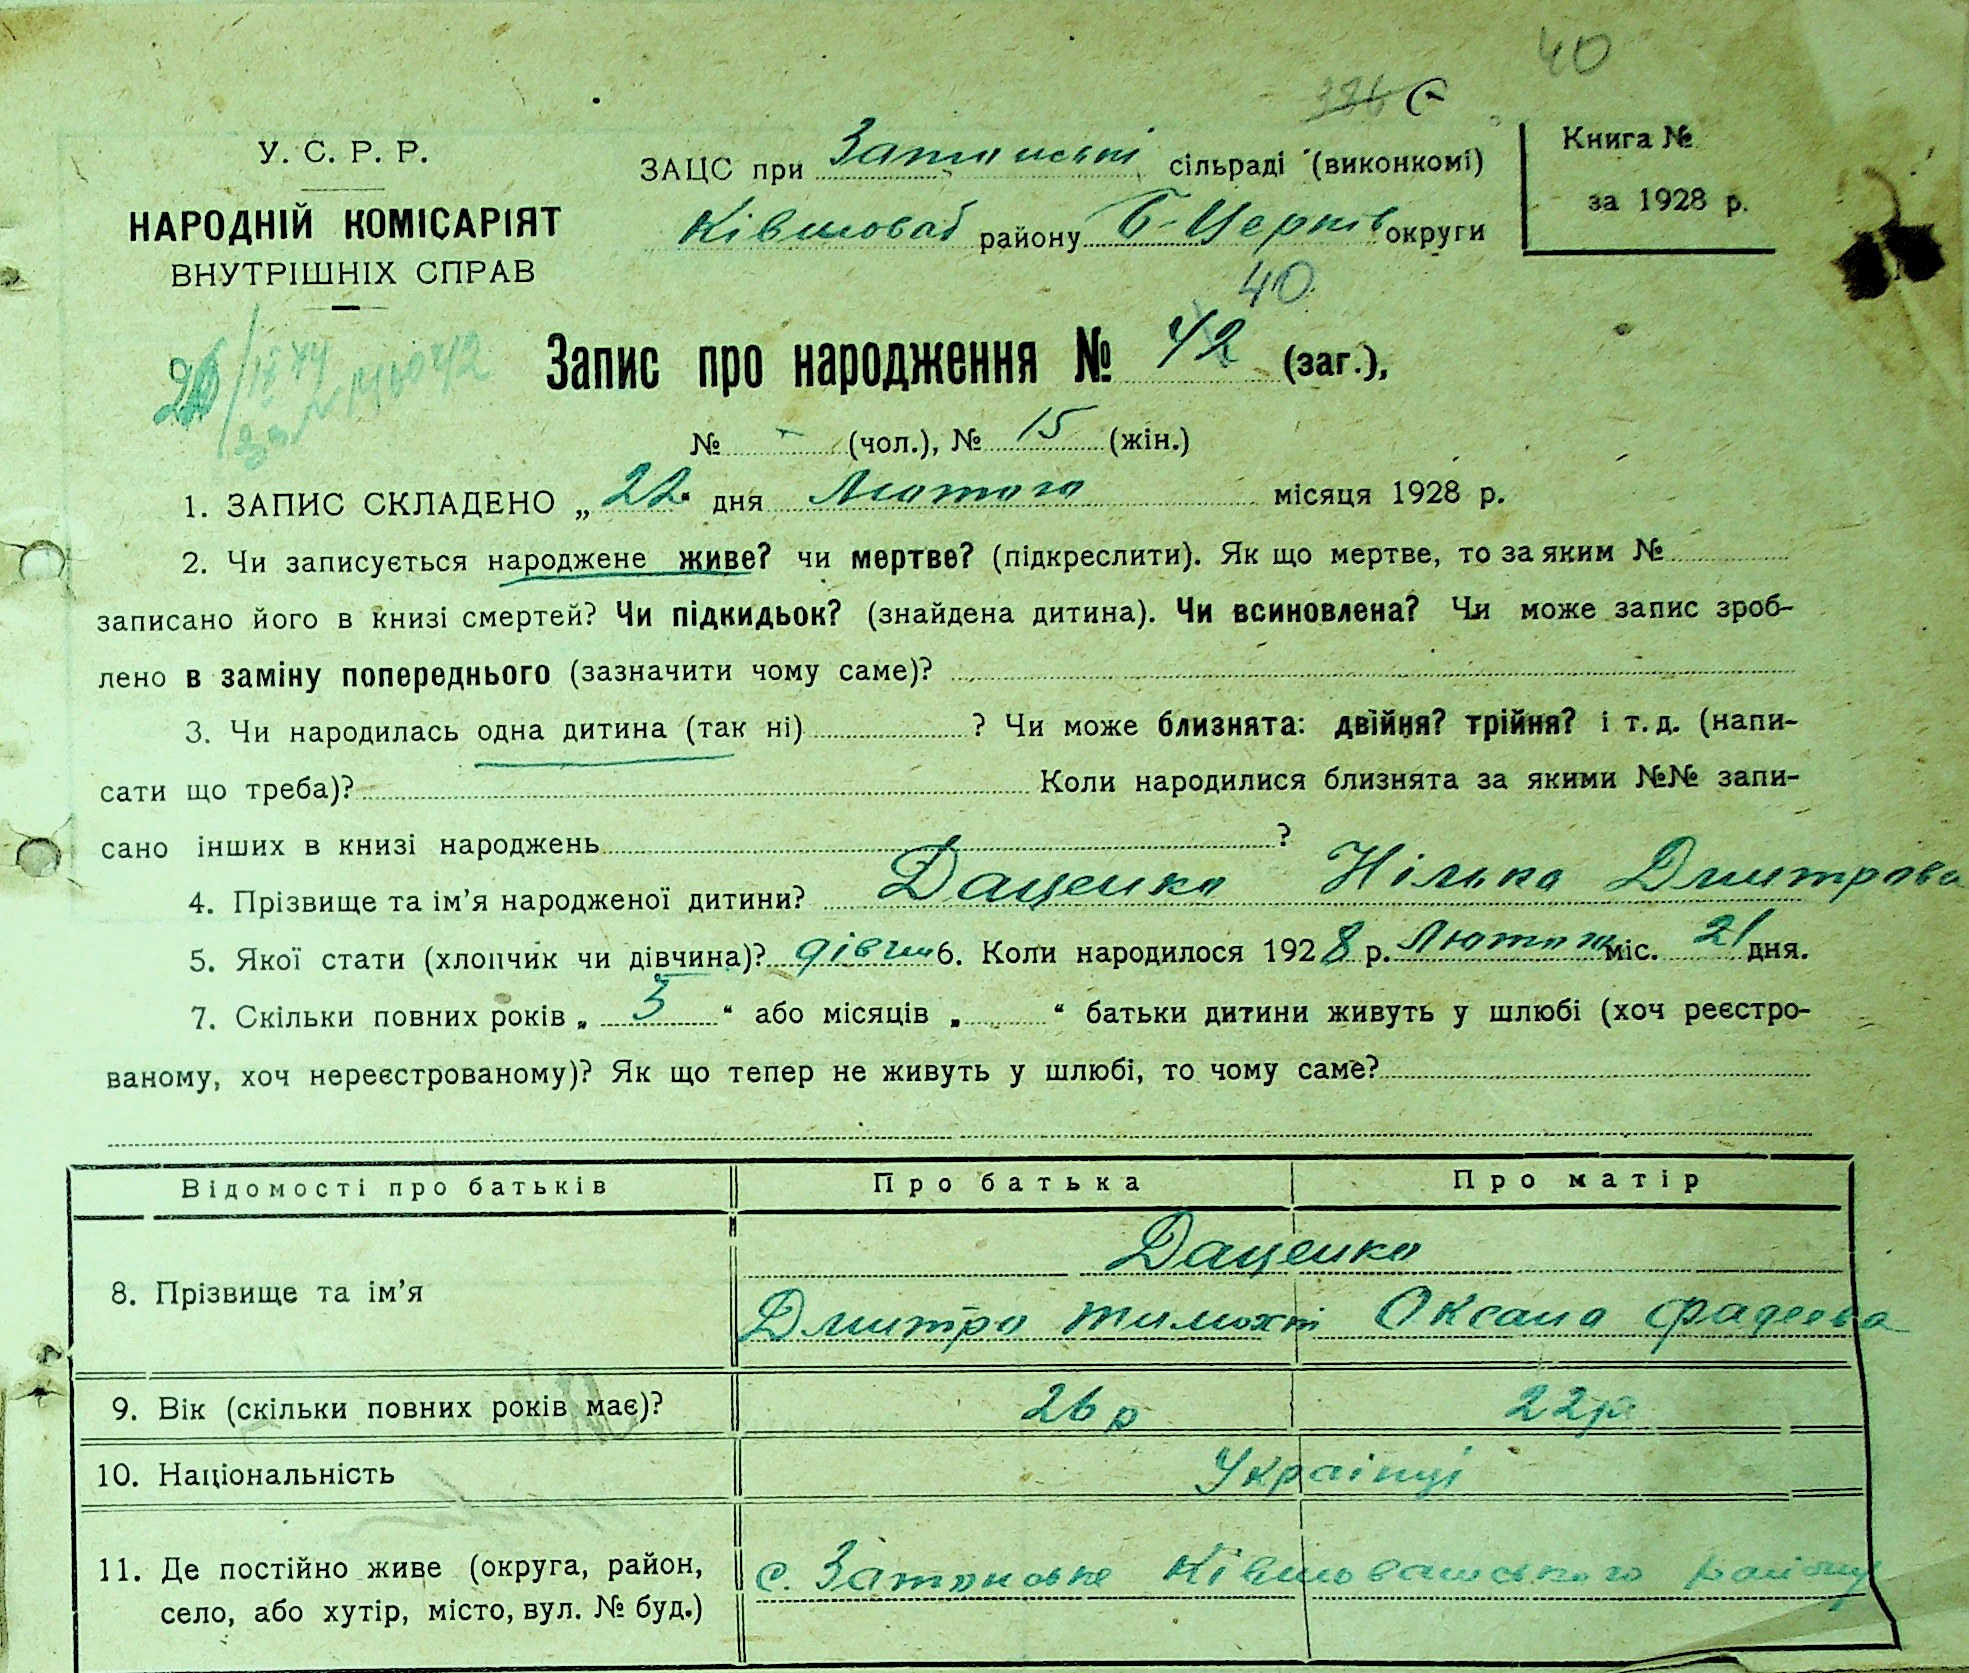 40
У. С. Р. Р.
НАРОДНІЙ КОМІСАРІЯТ
ВНУТРІШНІХ СПРАВ
ЗАЦС при сільраді (виконкомі)
району Б-Церків округи
Книга №
за 1928 р.
40
Запис про народження № 42 (заг.),
№ - (чол.), № 15 (жін.)
1. ЗАПИС СКЛАДЕНО „22“ дня Лютого місяця 1928 р.
2. Чи записується народжене живе? чи мертве? (підкреслити). Як що мертве, то за яким №
записано його в книзі смертей? Чи підкидьок? (знайдена дитина). Чи всиновлена? Чи може запис зроб-
лено в заміну попереднього (зазначити чому саме)?
3. Чи народилась одна дитина (так ні) ? Чи може близнята: двійня? трійня? і т. д. (напи-
сати що треба)? Коли народилися близнята за якими №№ запи-
сано інших в книзі народжень ?
4. Прізвище та ім'я народженої дитини? Даценко Нілька Дмитрова
5. Якої стати (хлопчик чи дівчина)? дівчи 6. Коли народилося 1928 р. міс. 21 дня.
7. Скільки повних років „ 5 “ або місяців „ “ батьки дитини живуть у шлюбі (хоч реєстро-
ваному, хоч нереєстрованому)? Як що тепер не живуть у шлюбі, то чому саме?
Відомості про батьків Про батька Про матір
8. Прізвище та ім'я Даценко
Дмитро Тимохт Оксана Фадеева
9. Вік (скільки повних років має)? 26 р 22 р
10. Національність Українці
11. Де постійно живе (округа, район,
село, або хутір, місто, вул. № буд.) с. району